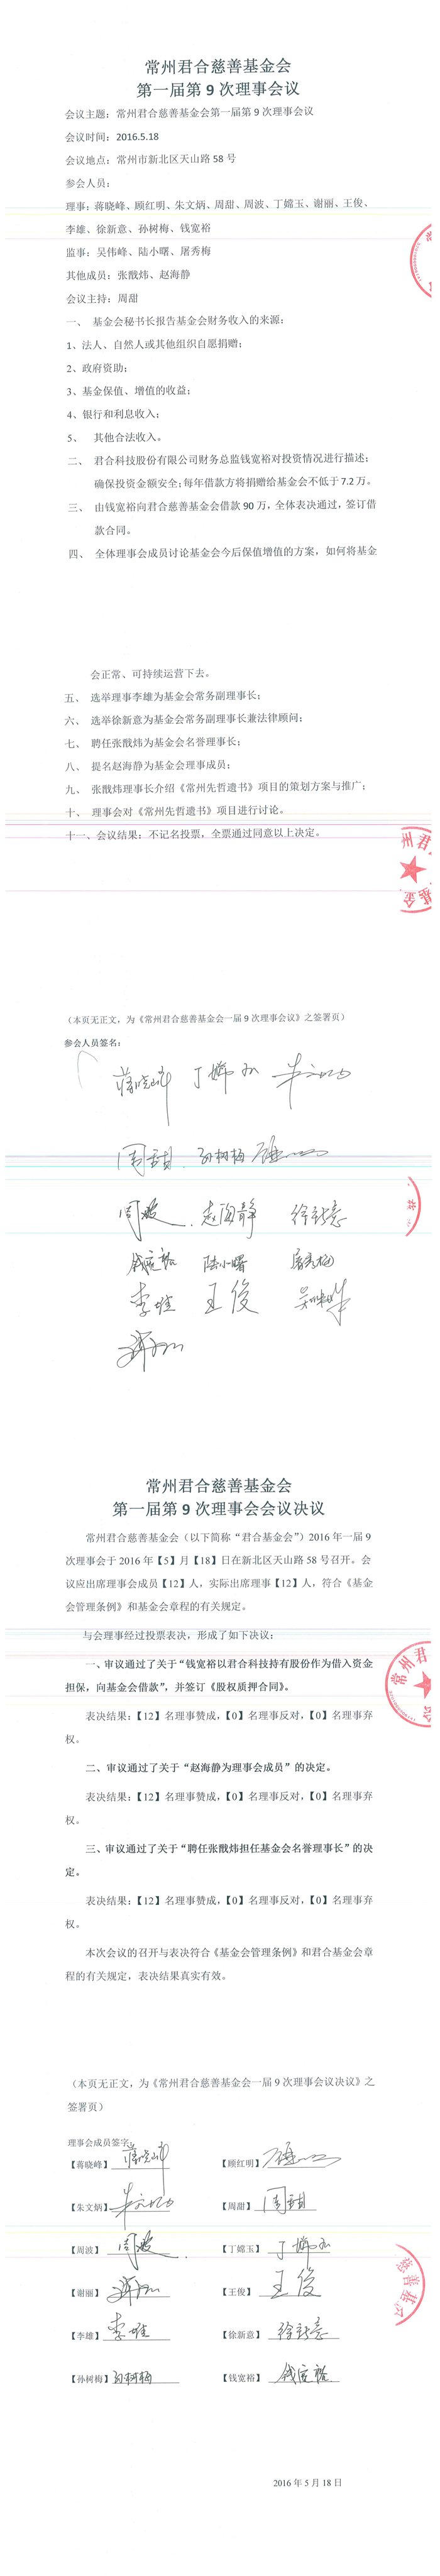 常州君合慈善基金会
第一届第 9 次理事会议
会议主题：常州君合慈善基金会第一届第 9 次理事会议
会议时间：2016.5.18
会议地点：常州市新北区天山路 58 号
参会人员：
理事：蒋晓峰、顾红明、朱文炳、周甜、周波、丁嫦玉、谢丽、王俊、
李雄、徐新意、孙树梅、钱宽裕
监事：吴伟峰、陆小曙、屠秀梅
其他成员：张戬炜、赵海静
会议主持：周甜
一、 基金会秘书长报告基金会财务收入的来源：
1、法人、自然人或其他组织自愿捐赠；
2、政府资助；
3、基金保值、增值的收益；
4、银行和利息收入；
5、 其他合法收入。
二、 君合科技股份有限公司财务总监钱宽裕对投资情况进行描述；
确保投资金额安全；每年借款方将捐赠给基金会不低于 7.2 万。
三、 由钱宽裕向君合慈善基金会借款 90 万，全体表决通过，签订借
款合同。
四、 全体理事会成员讨论基金会今后保值增值的方案，如何将基金
会正常、可持续运营下去。
五、 选举理事李雄为基金会常务副理事长；
六、 选举徐新意为基金会常务副理事长兼法律顾问；
七、 聘任张戬炜为基金会名誉理事长；
八、 提名赵海静为基金会理事成员；
九、 张戬炜理事长介绍《常州先哲遗书》项目的策划方案与推广；
十、 理事会对《常州先哲遗书》项目进行讨论。
十一、会议结果：不记名投票，全票通过同意以上决定。
州君
基金
（本页无正文，为《常州君合慈善基金会一届 9 次理事会议》之签署页）
参会人员签名：
蒋晓峰 丁嫦玉 朱文炳
周甜 孙树梅 顾红明
周波 赵海静 徐新意
钱宽裕 陆小曙 屠秀梅
李雄 王俊 吴伟峰
谢丽
常州君合慈善基金会
第一届第 9 次理事会会议决议
常州君合慈善基金会（以下简称“君合基金会”）2016 年一届 9
次理事会于 2016 年【5】月【18】日在新北区天山路 58 号召开。会
议应出席理事会成员【12】人，实际出席理事【12】人，符合《基金
会管理条例》和基金会章程的有关规定。
与会理事经过投票表决，形成了如下决议：
一、审议通过了关于“钱宽裕以君合科技持有股份作为借入资金
担保，向基金会借款”，并签订《股权质押合同》。
常州君
表决结果：【12】名理事赞成，【0】名理事反对，【0】名理事弃
权。
二、审议通过了关于“赵海静为理事会成员”的决定。
表决结果：【12】名理事赞成，【0】名理事反对，【0】名理事弃
权。
三、审议通过了关于“聘任张戬炜担任基金会名誉理事长”的决
定。
表决结果：【12】名理事赞成，【0】名理事反对，【0】名理事弃
权。
本次会议的召开与表决符合《基金会管理条例》和君合基金会章
程的有关规定，表决结果真实有效。
（本页无正文，为《常州君合慈善基金会一届 9 次理事会议决议》之
签署页）
理事会成员签字：
【蒋晓峰】蒋晓峰 【顾红明】顾红明
【朱文炳】朱文炳 【周甜】周甜
【周波】周波 【丁嫦玉】丁嫦玉
【谢丽】谢丽 【王俊】王俊
【李雄】李雄 【徐新意】徐新意
【孙树梅】孙树梅 【钱宽裕】钱宽裕
慈善基
2016 年 5 月 18 日